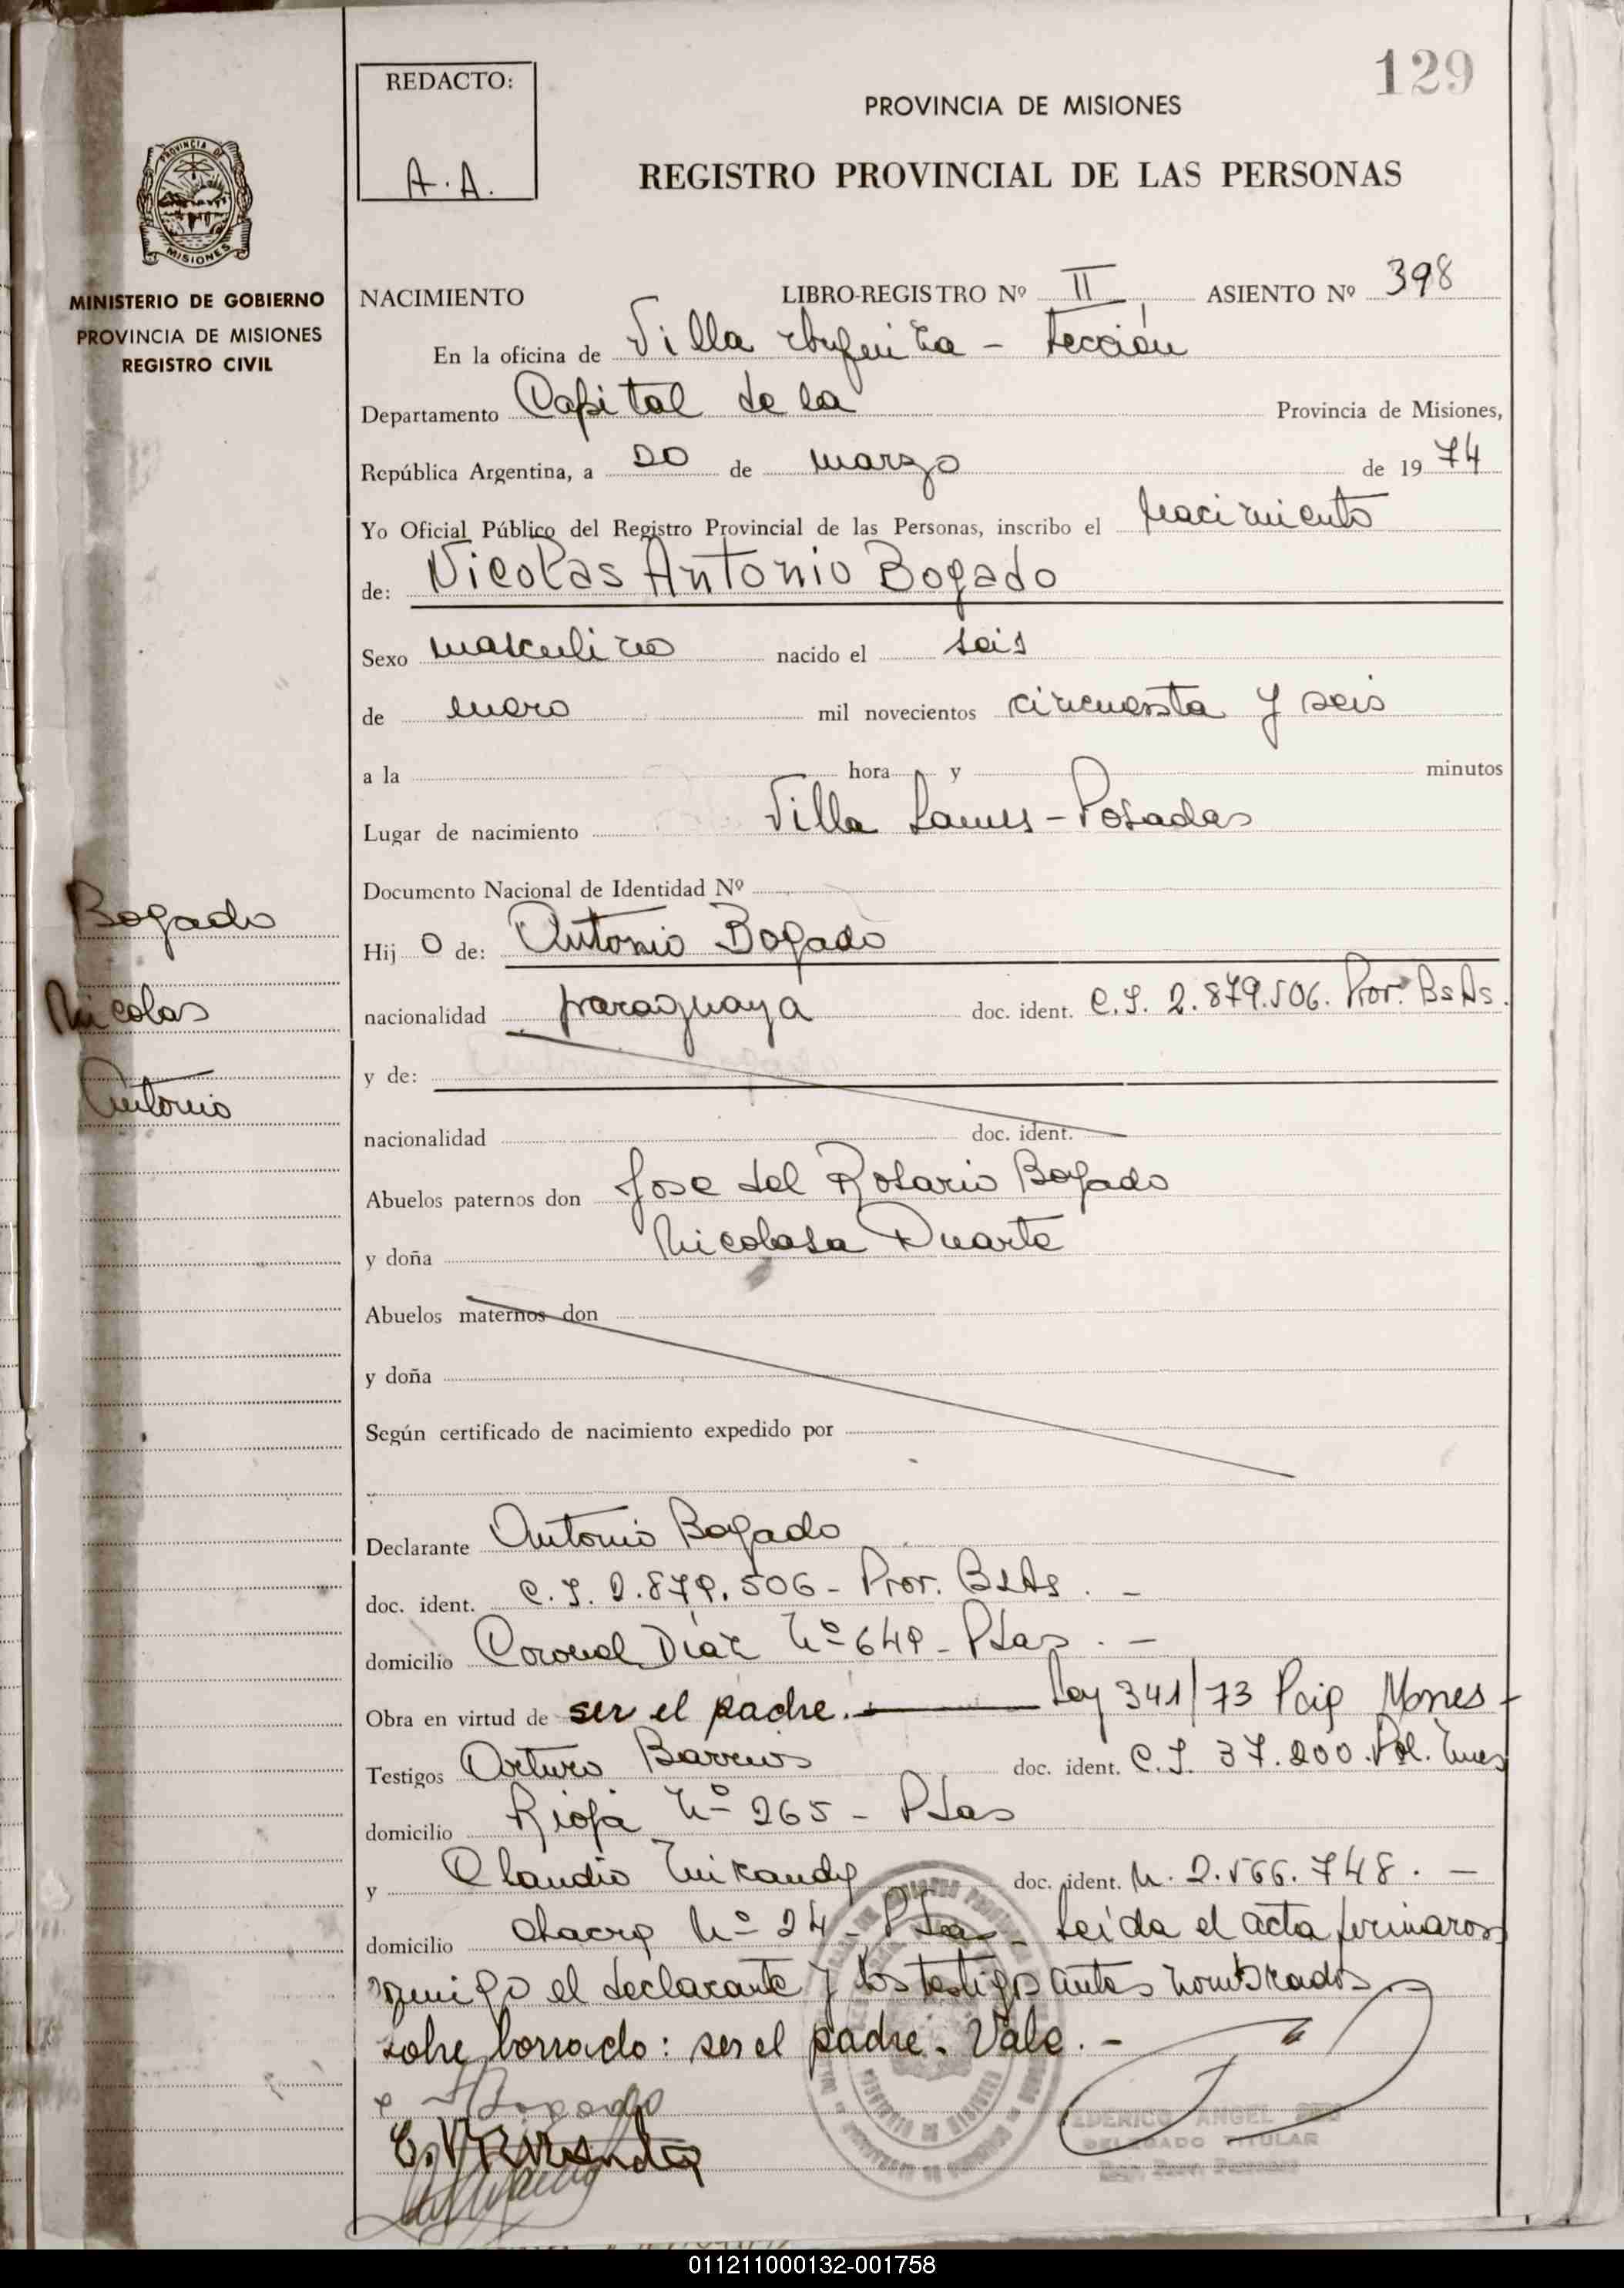 129
REDACTO:
A. A.
PROVINCIA DE MISIONES
REGISTRO PROVINCIAL DE LAS PERSONAS
PROVINCIA DE
MISIONES
MINISTERIO DE GOBIERNO
PROVINCIA DE MISIONES
REGISTRO CIVIL
NACIMIENTO LIBRO-REGISTRO Nº II ASIENTO Nº 398
En la oficina de Villa - Sección
Departamento Capital de la Provincia de Misiones,
República Argentina, a 20 de marzo de 1974
Yo Oficial Público del Registro Provincial de las Personas, inscribo el Nacimiento
de: Nicolas Antonio Bogado
Sexo masculino nacido el seis
de enero mil novecientos cincuenta y seis
a la hora y minutos
Lugar de nacimiento Villa Lanus - Posadas
Documento Nacional de Identidad Nº
Bogado
Hij o de: Antonio Bogado
Nicolas
nacionalidad paraguaya doc. ident. C.I. 2.879.506. Pror. Bs As.
y de:
Antonio
nacionalidad doc. ident.
Abuelos paternos don Jose del Rosario Bogado
y doña Nicolasa Duarte
Abuelos maternos don
y doña
Según certificado de nacimiento expedido por
Declarante Antonio Bogado
doc. ident. C.I. 2.879.506 - Pror. Bs As. -
domicilio Coronel Diaz Nº 649 - Pdas. -
Obra en virtud de ser el padre. Ley 341/73 Poip Mnes -
Testigos Arturo Barrios doc. ident. C.I. 37.200. Pol. Mnes
domicilio Rioja Nº 265 - Pdas
y Claudio Miranda doc. ident. M. 2.566.748. -
domicilio chacra Nº 24 - Pdas - Leida el acta firmaron
conmigo el declarante y los testigos antes nombrados
sobre borrado: ser el padre. Vale. -
Bogado
C. V. Miranda
FEDERICO ANGEL
DELEGADO TITULAR
011211000132-001758